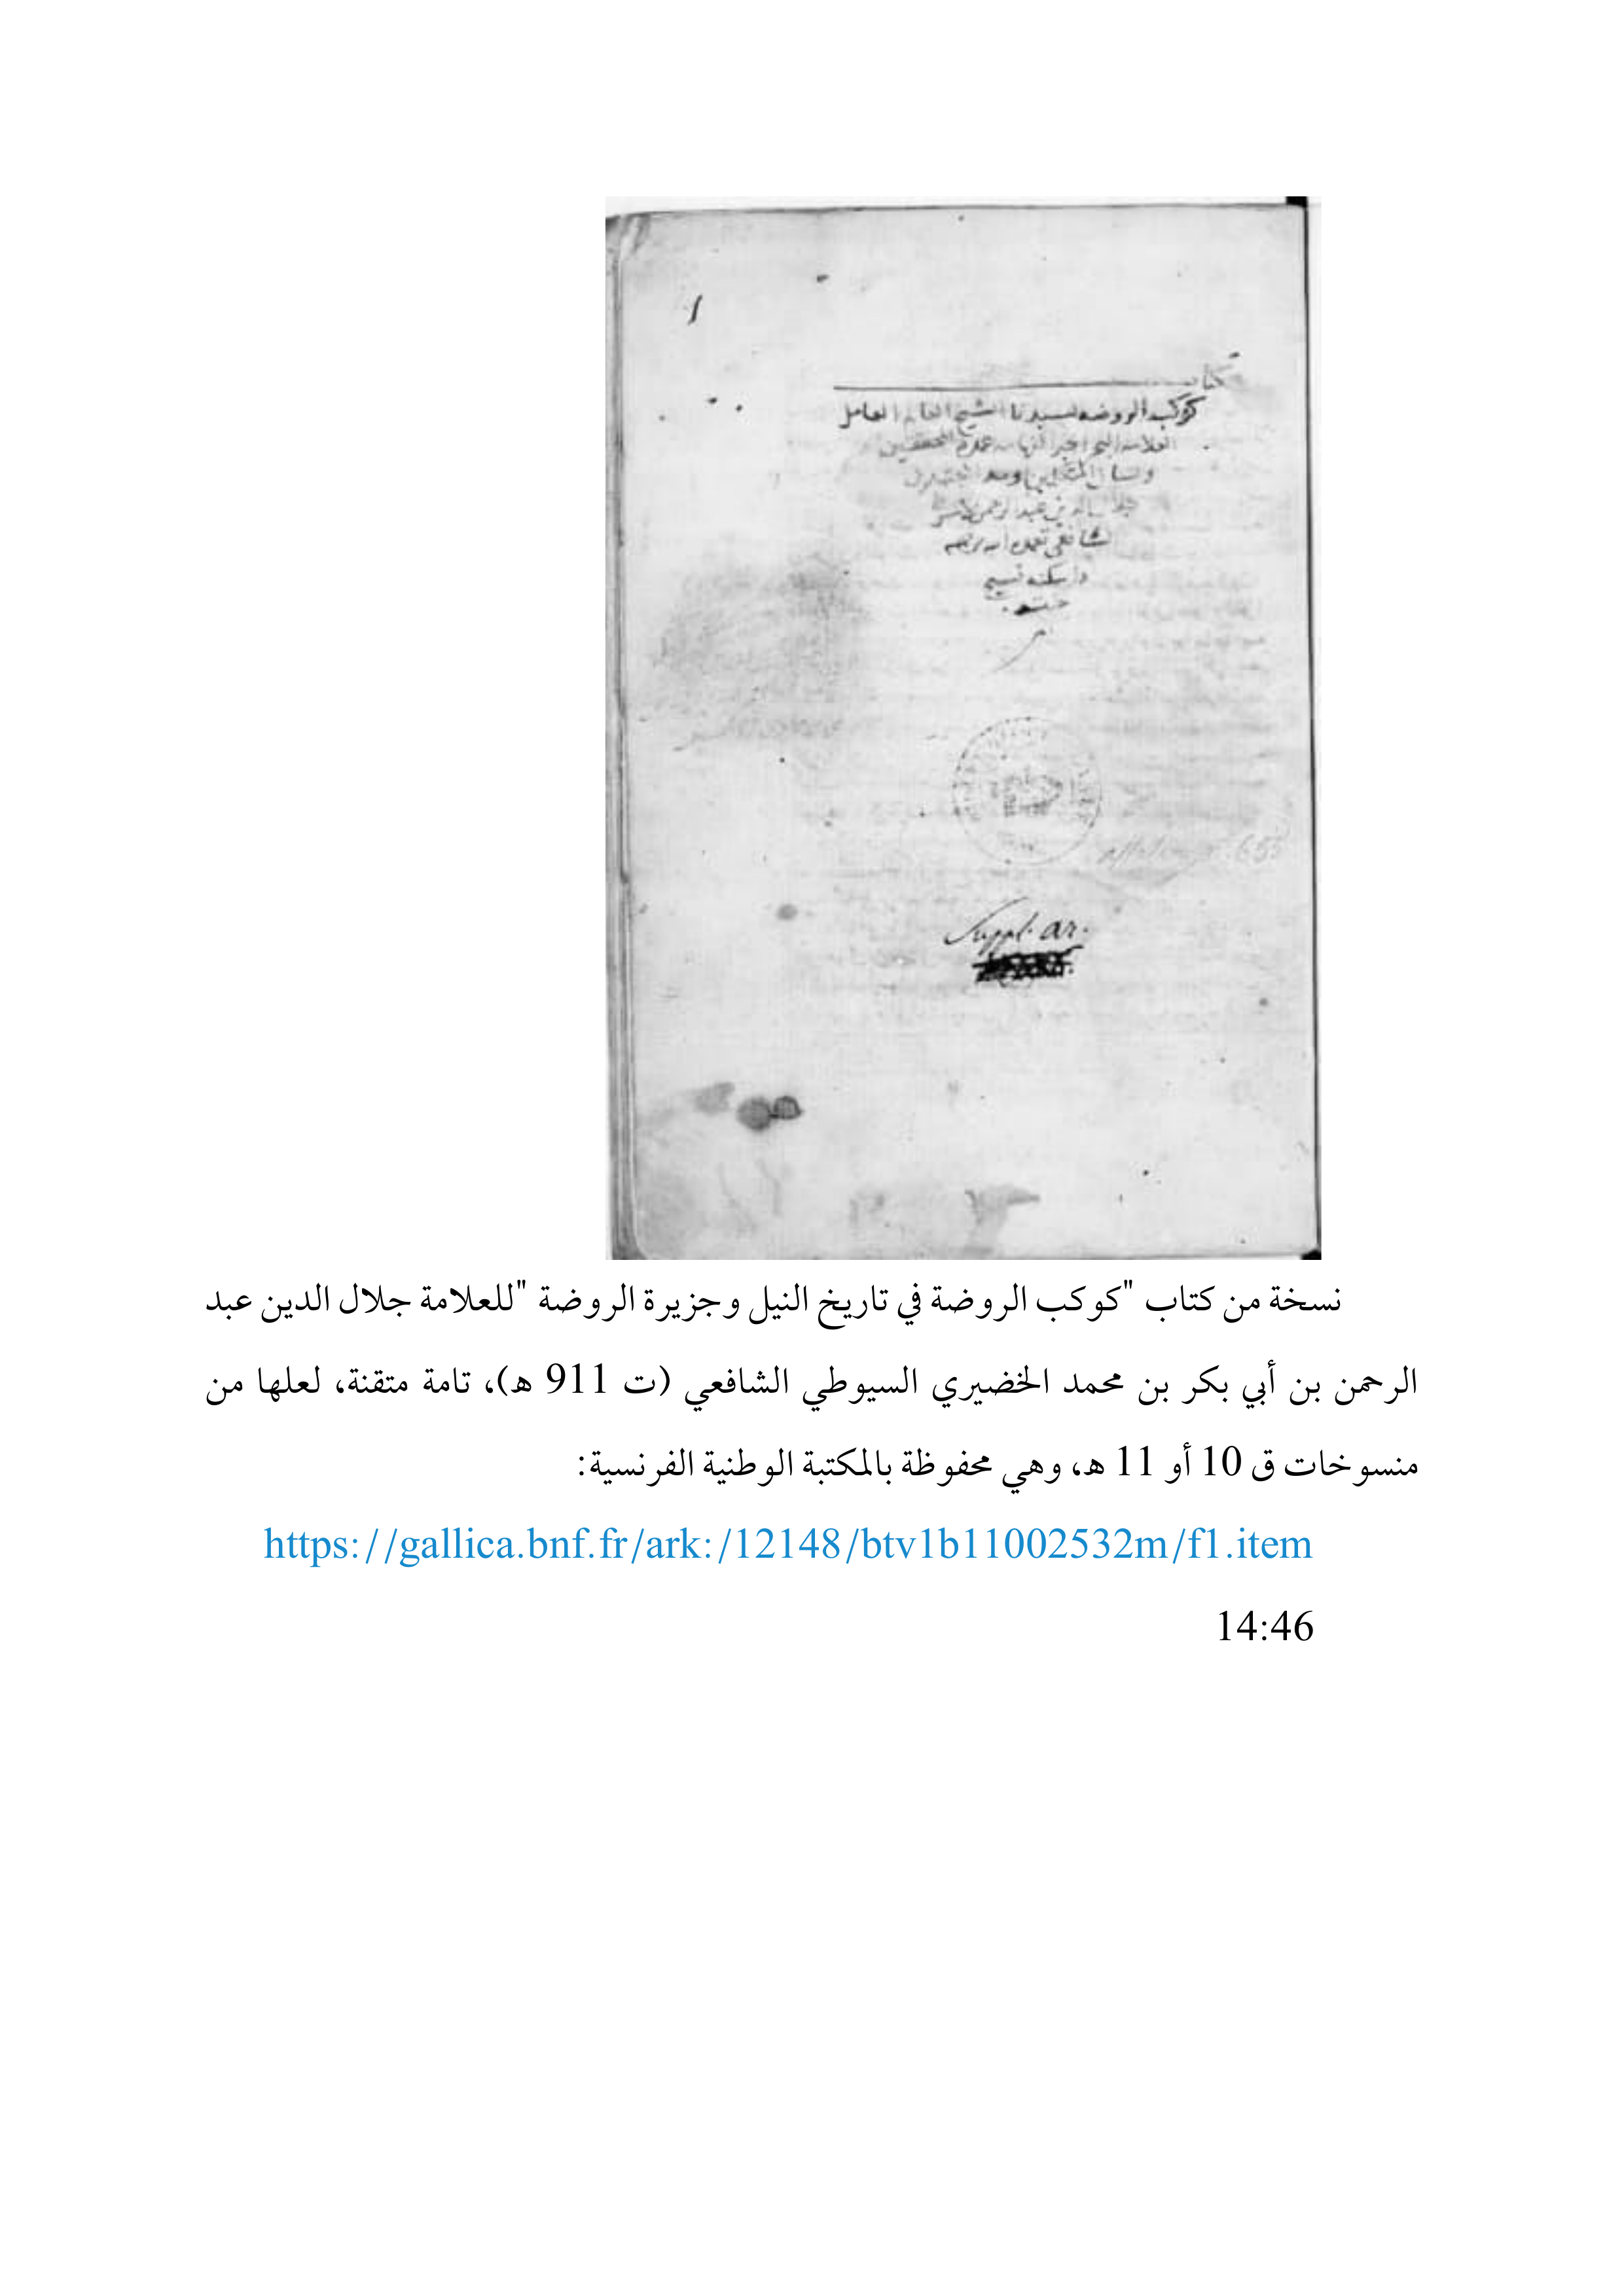 1
كتاب
كوكب الروضه لسيدنا الشيخ العالم العامل
العلامه البحر الحبر الفهامه عمدة المحققين
ولسان المتكلمين
جلال الدين عبد الرحمن
الشافعي تغمده الله برحمته
واسكنه فسيح
Suppl. ar.
نسخة من كتاب "كوكب الروضة في تاريخ النيل وجزيرة الروضة "للعلامة جلال الدين عبد
الرحمن بن أبي بكر بن محمد الخضيري السيوطي الشافعي (ت 911 هـ)، تامة متقنة، لعلها من
منسوخات ق 10 أو 11 هـ، وهي محفوظة بالمكتبة الوطنية الفرنسية:
https://gallica.bnf.fr/ark:/12148/btv1b11002532m/f1.item
14:46